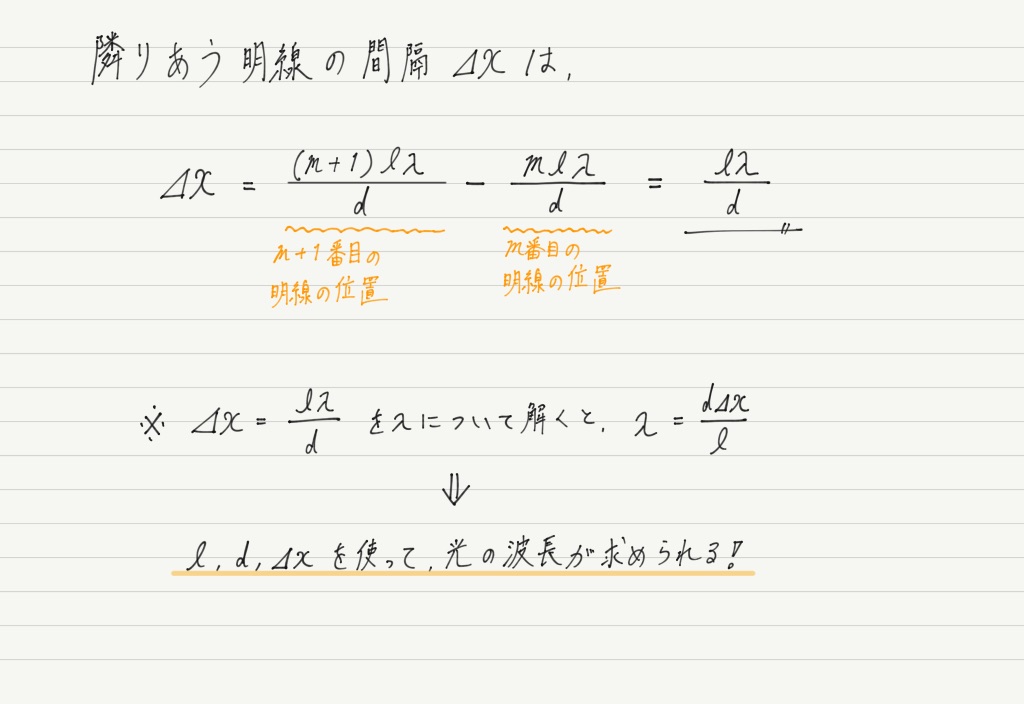 隣りあう明線の間隔 Δx は,
Δx = (m+1)lλ/d − mlλ/d = lλ/d
m+1番目の
明線の位置
m番目の
明線の位置
※ Δx = lλ/d をλについて解くと, λ = dΔx/l
⇓
l, d, Δx を使って, 光の波長が求められる!